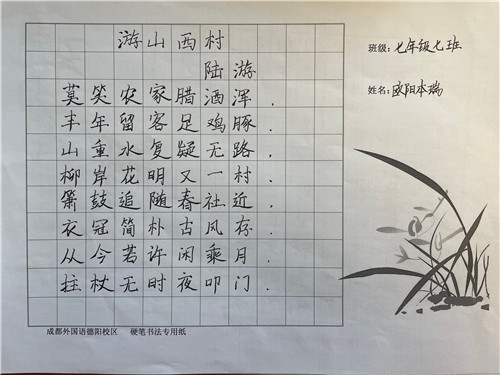 游山西村
陆游
莫笑农家腊酒浑，
丰年留客足鸡豚。
山重水复疑无路，
柳岸花明又一村。
箫鼓追随春社近，
衣冠简朴古风存。
从今若许闲乘月，
拄杖无时夜叩门。
班级：七年级七班
姓名：欧阳本瑞
成都外国语德阳校区 硬笔书法专用纸